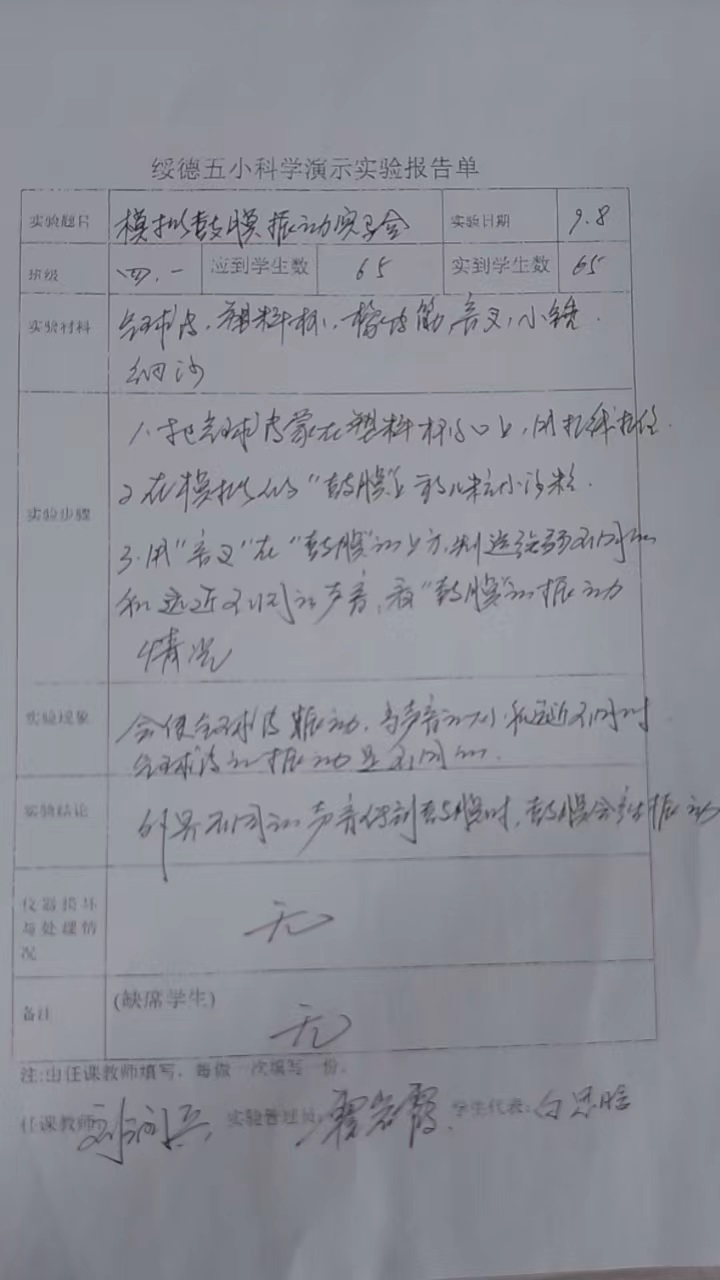 绥德五小科学演示实验报告单
实验题目 模拟鼓膜振动实验 实验日期 9.8
班级 四.一 应到学生数 65 实到学生数 65
实验材料 气球皮，塑料杯，橡皮筋，音叉，小锤.
细沙
1.把气球皮蒙在塑料杯的口上，用扎线扎住.
2在模拟的"鼓膜"上放几粒小沙粒.
实验步骤
3.用"音叉"在"鼓膜"的上方，制造强弱不同的
和远近不同的声音，看"鼓膜"的振动
情况
实验现象 会使气球皮振动，当声音的大小和远近不同时
气球皮的振动是不同的.
实验结论 外界不同的声音传到鼓膜时，鼓膜会产生振动
仪器损坏
与处理情 无
况
备注 (缺席学生)
无
注:由任课教师填写，每做一次填写一份.
任课教师: 实验管理员: 学生代表: